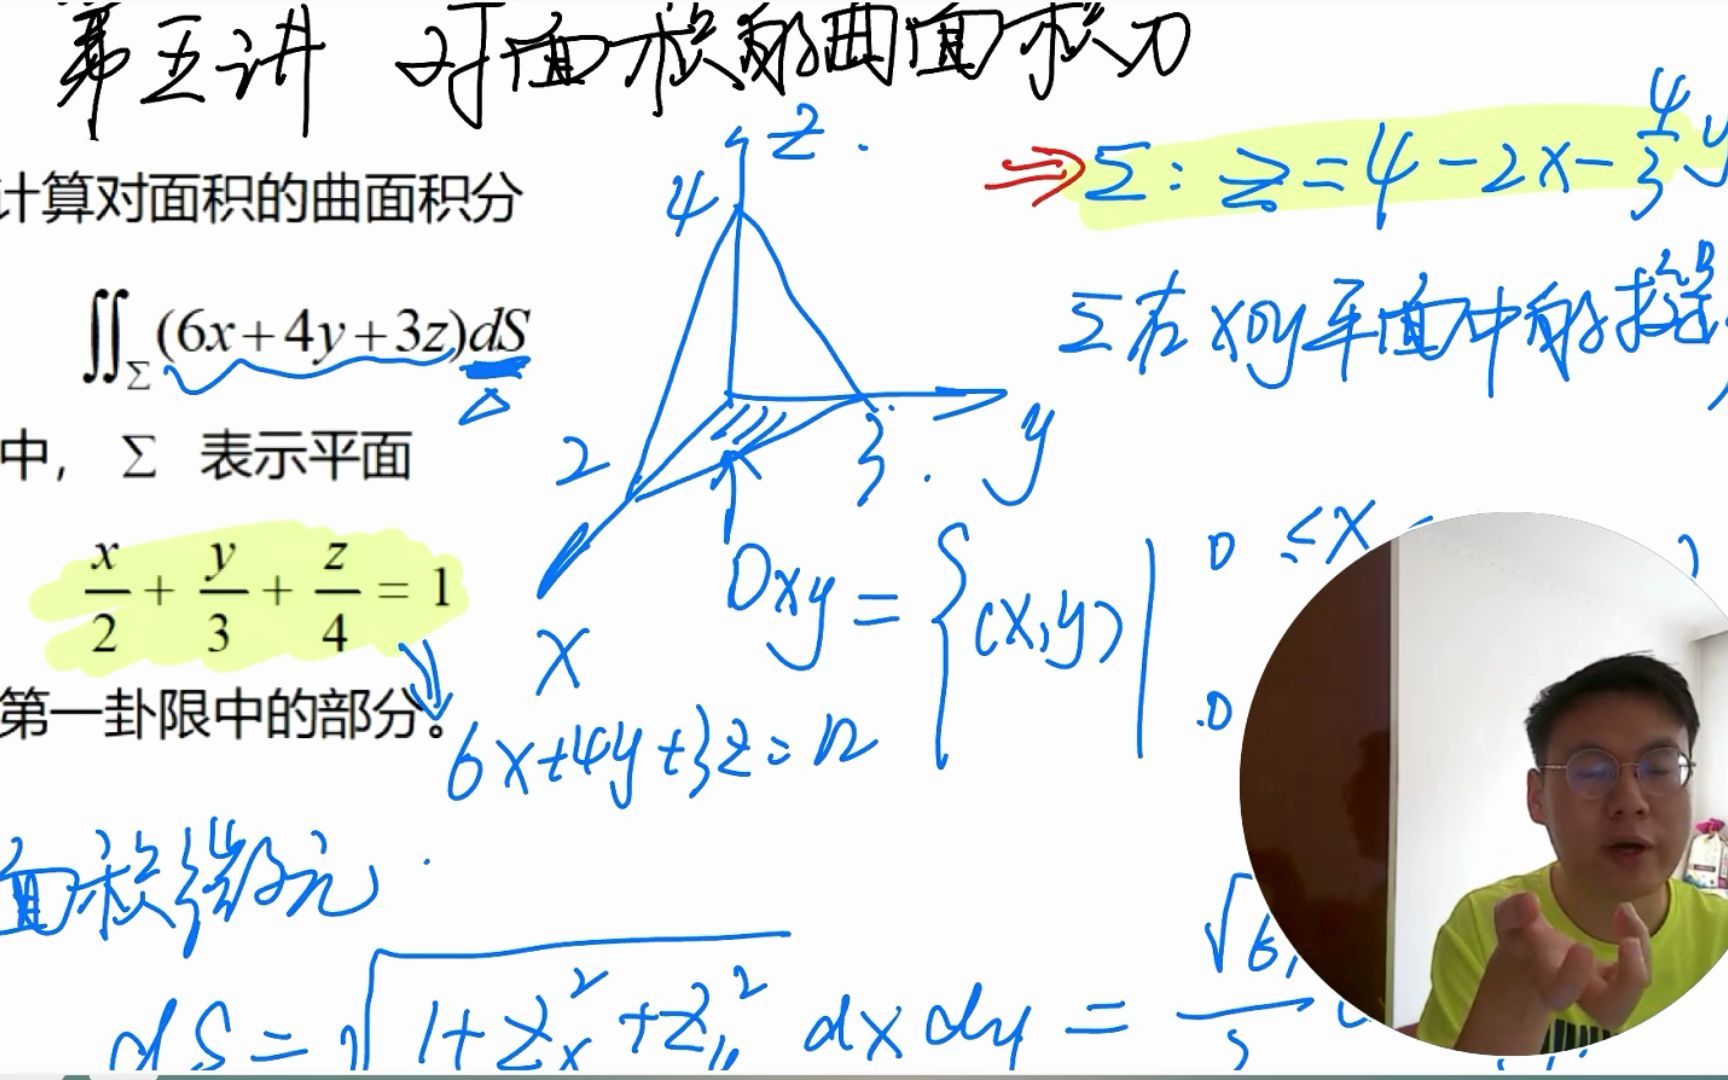 第五讲 对面积的曲面积分
计算对面积的曲面积分
∬_Σ (6x+4y+3z)dS
中， Σ 表示平面
x/2 + y/3 + z/4 = 1
第一卦限中的部分。
6x+4y+3z=12
z
4
2
3
y
x
⇒ Σ: z=4-2x-4/3y
Σ在xoy平面中的投影
Dxy = {(x,y) | 0 ≤ x ≤
0
面积微元
dS = √(1+z_x^2+z_y^2) dxdy = √61/3